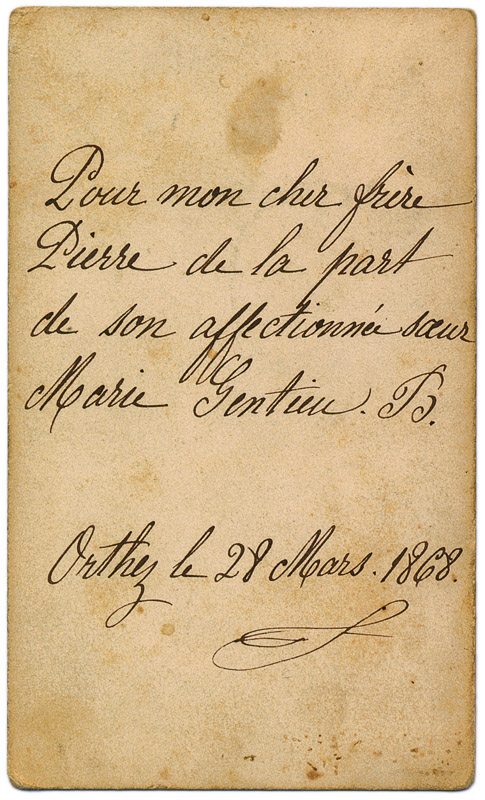 Pour mon cher frère
Pierre de la part
de son affectionnée sœur
Marie Gentieu. B.
Orthez le 28 Mars. 1868.